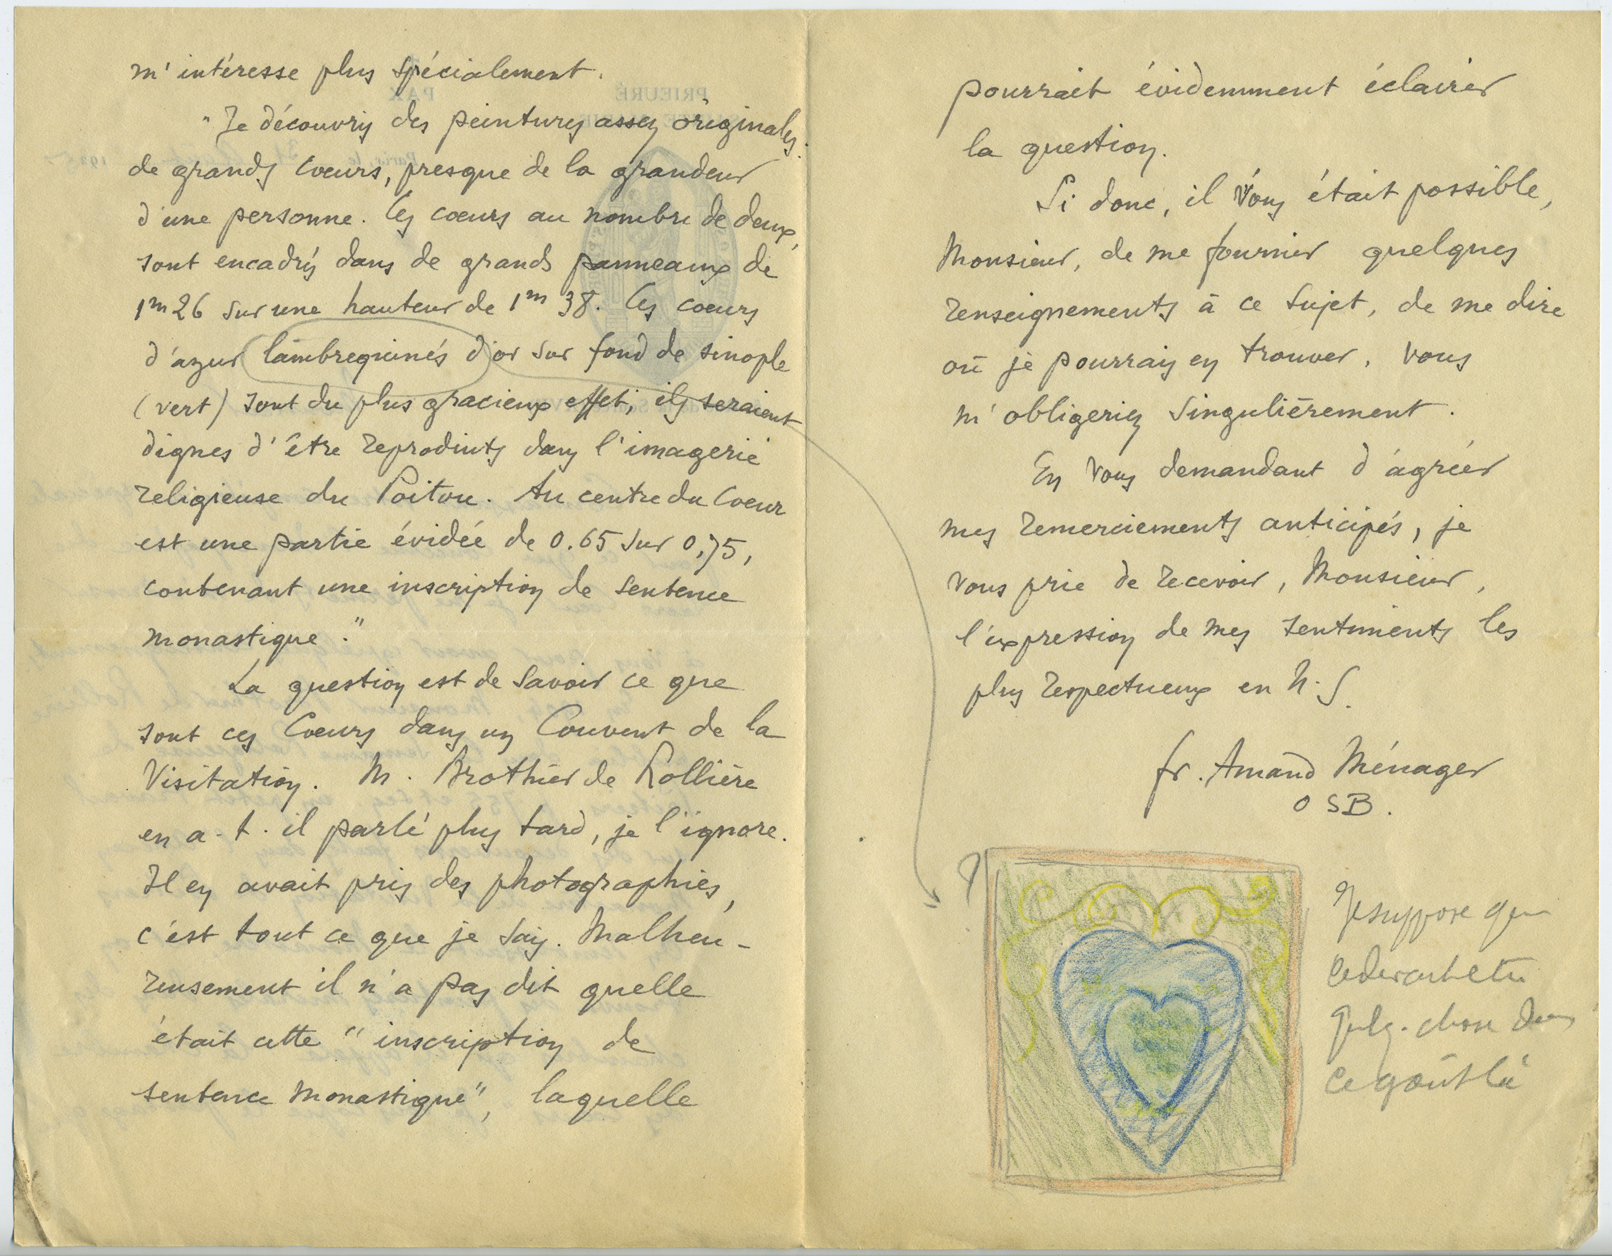 m'intéresse plus spécialement.
"Je découvris des peintures assez originales:
de grands Cœurs, presque de la grandeur
d'une personne. Ces cœurs au nombre de deux,
sont encadrés dans de grands panneaux de
1m26 sur une hauteur de 1m 38. Ces cœurs
d'azur lambrequinés d'or sur fond de sinople
(vert) sont du plus gracieux effet, ils seraient
dignes d'être reproduits dans l'imagerie
religieuse du Poitou. Au centre du Cœur
est une partie évidée de 0.65 sur 0,75,
contenant une inscription de sentence
monastique."
La question est de savoir ce que
sont ces Cœurs dans un Couvent de la
Visitation. M. Brothier de Rollière
en a-t-il parlé plus tard, je l'ignore.
Il en avait pris des photographies,
c'est tout ce que je sais. Malheu-
reusement il n'a pas dit quelle
était cette "inscription de
sentence monastique", laquelle
pourrait évidemment éclairer
la question.
Si donc, il vous était possible,
Monsieur, de me fournir quelques
renseignements à ce sujet, de me dire
où je pourrais en trouver, vous
m'obligeriez singulièrement.
En vous demandant d'agréer
mes remerciements anticipés, je
vous prie de recevoir, Monsieur,
l'expression de mes sentiments les
plus respectueux en N. S.
fr. Amand Ménager
OSB.
?
Je suppose que
ce devait être
quelq. chose dans
ce goût là
PRIEURÉ
PAX